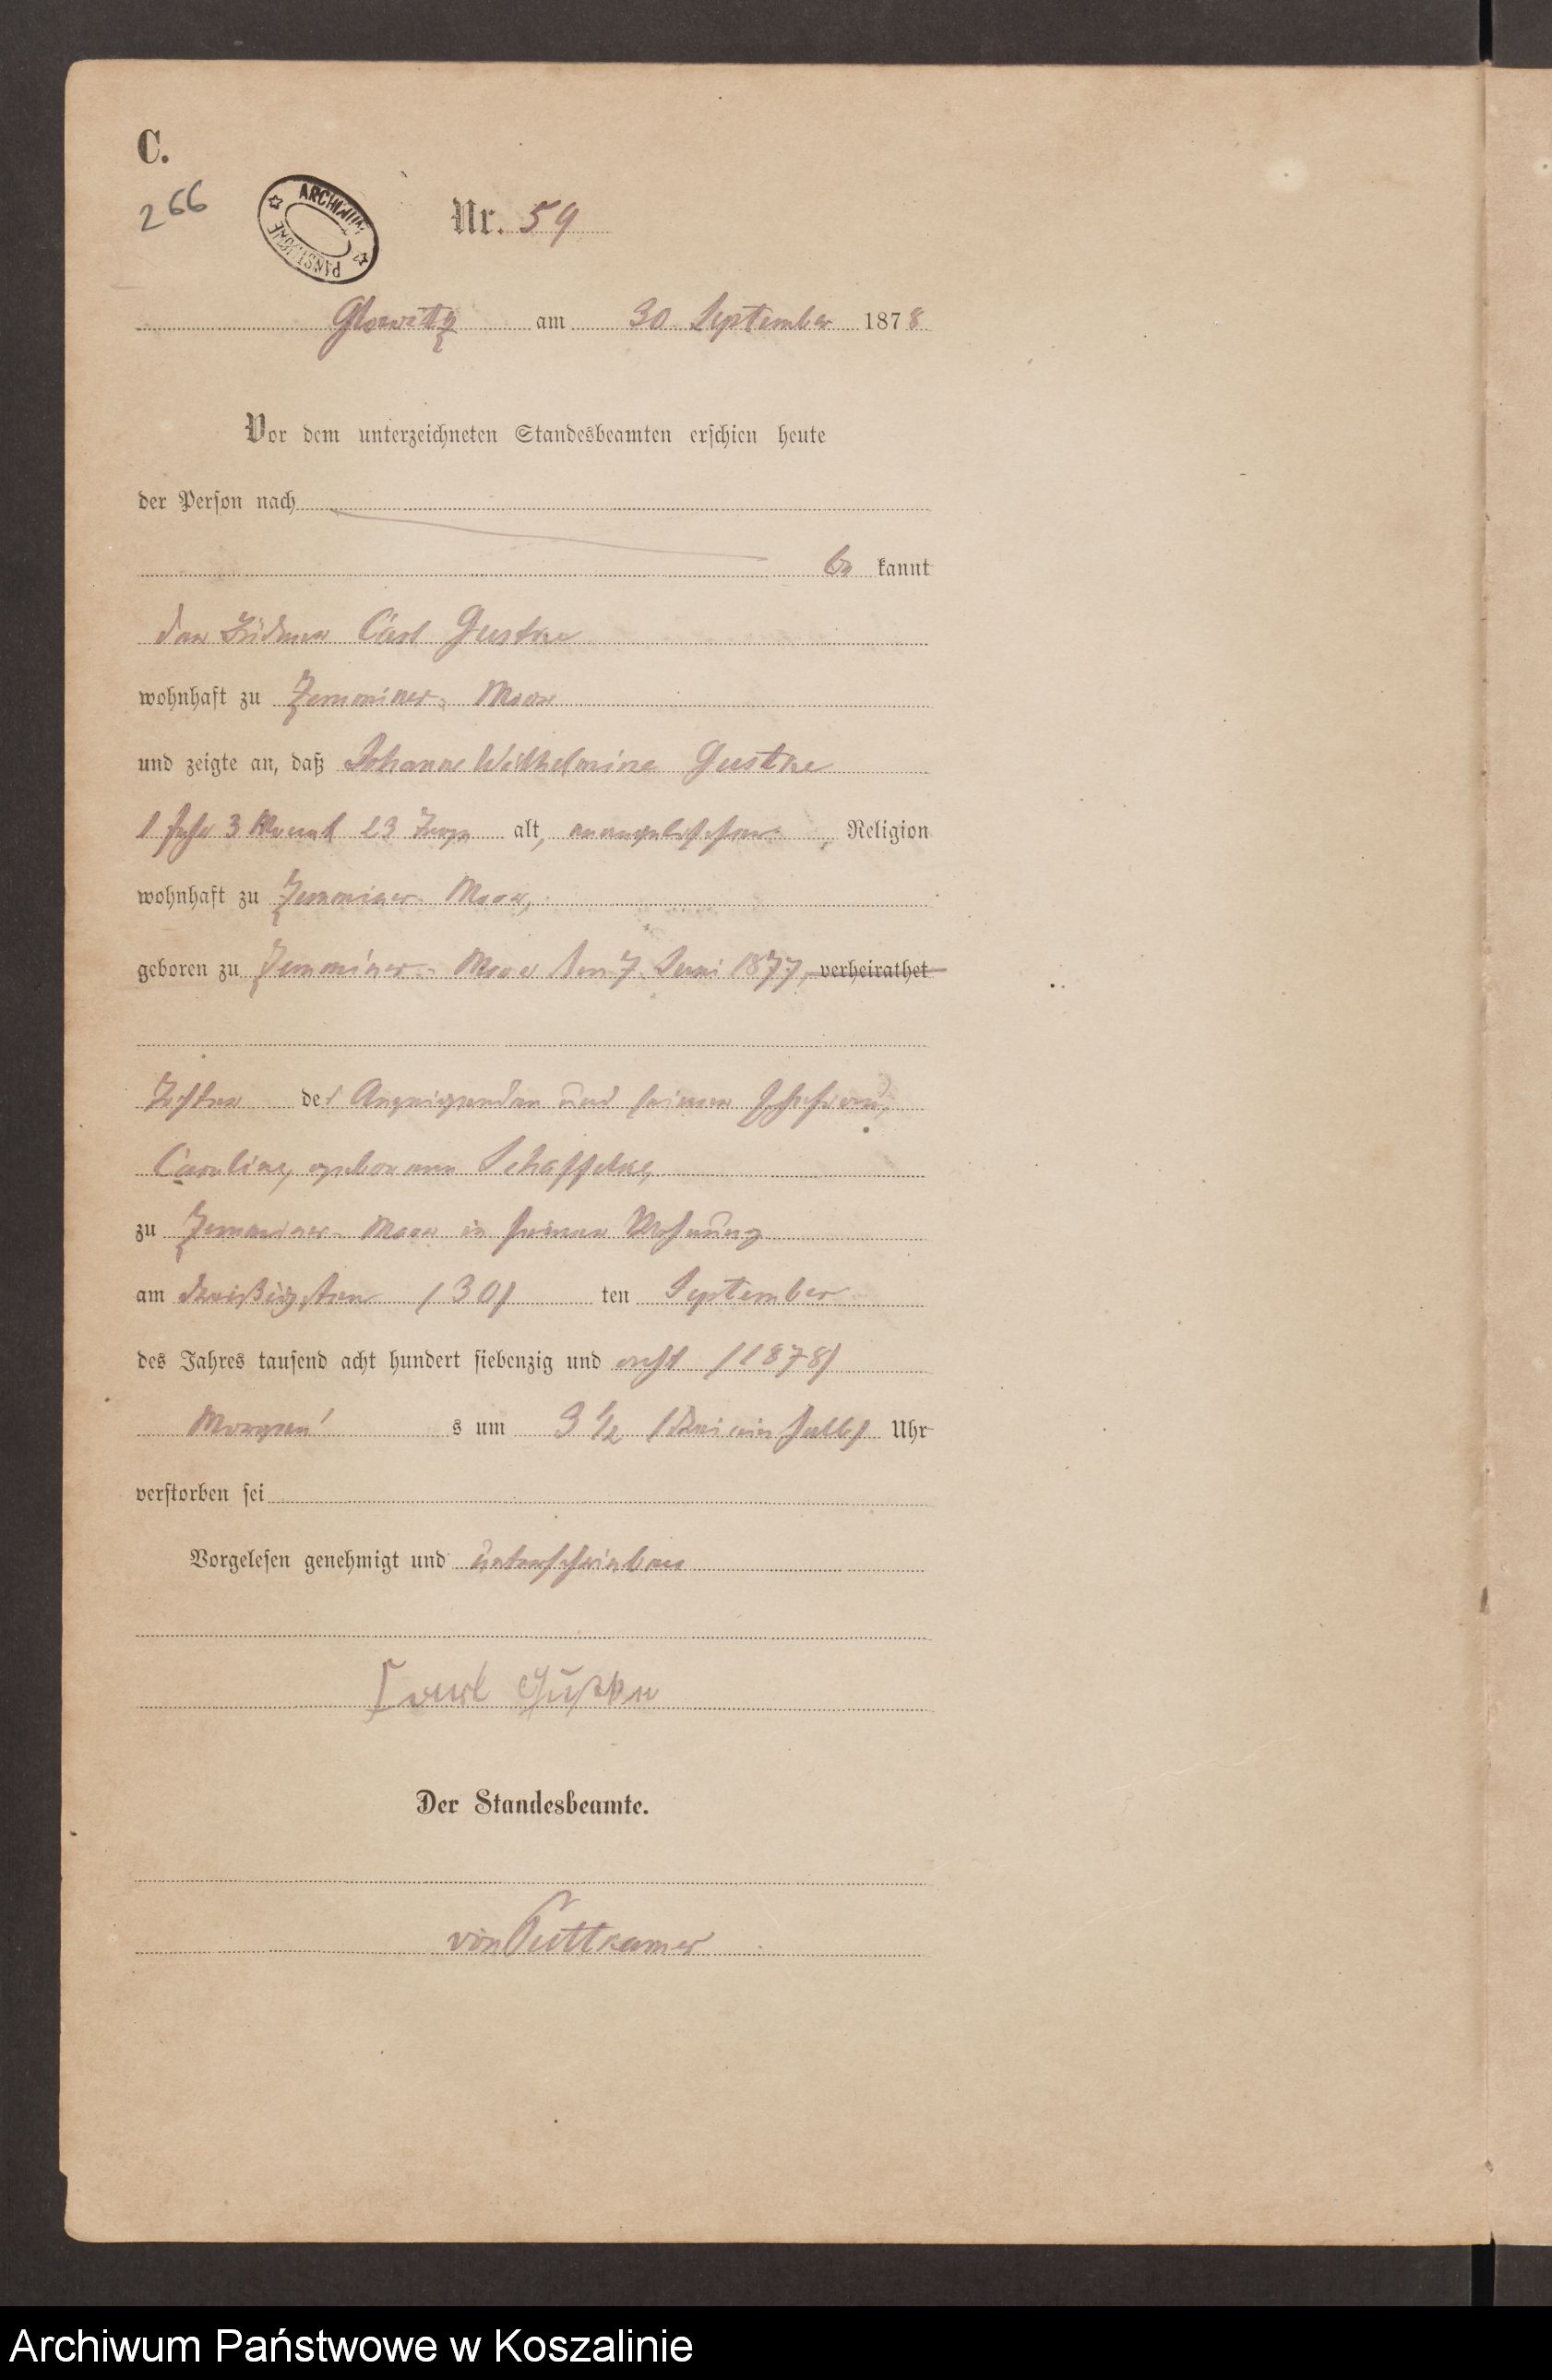 C.
266
ARCHIWUM PAŃSTWOWE
Nr. 59
Glowitz am 30. September 1878
Vor dem unterzeichneten Standesbeamten erschien heute
der Person nach
be kannt
der Büdner Carl Gustke
wohnhaft zu Zemminer-Moor
und zeigte an, daß Johanne Wilhelmine Gustke
1 Jahr 3 Monat 23 Tage alt, evangelischer Religion
wohnhaft zu Zemminer-Moor,
geboren zu Zemminer-Moor den 7. Juni 1877, verheirathet
Tochter des Anzeigenden und seiner Ehefrau,
Caroline, geborenen
zu Zemminer-Moor in seiner Wohnung
am dreißigsten (30) ten September
des Jahres tausend acht hundert siebenzig und acht (1878)
Morgen s um 3 1/2 (drei ein halb) Uhr
verstorben sei
Vorgelesen genehmigt und unterschrieben
Carl Gustke
Der Standesbeamte.
von Puttkamer
Archiwum Państwowe w Koszalinie